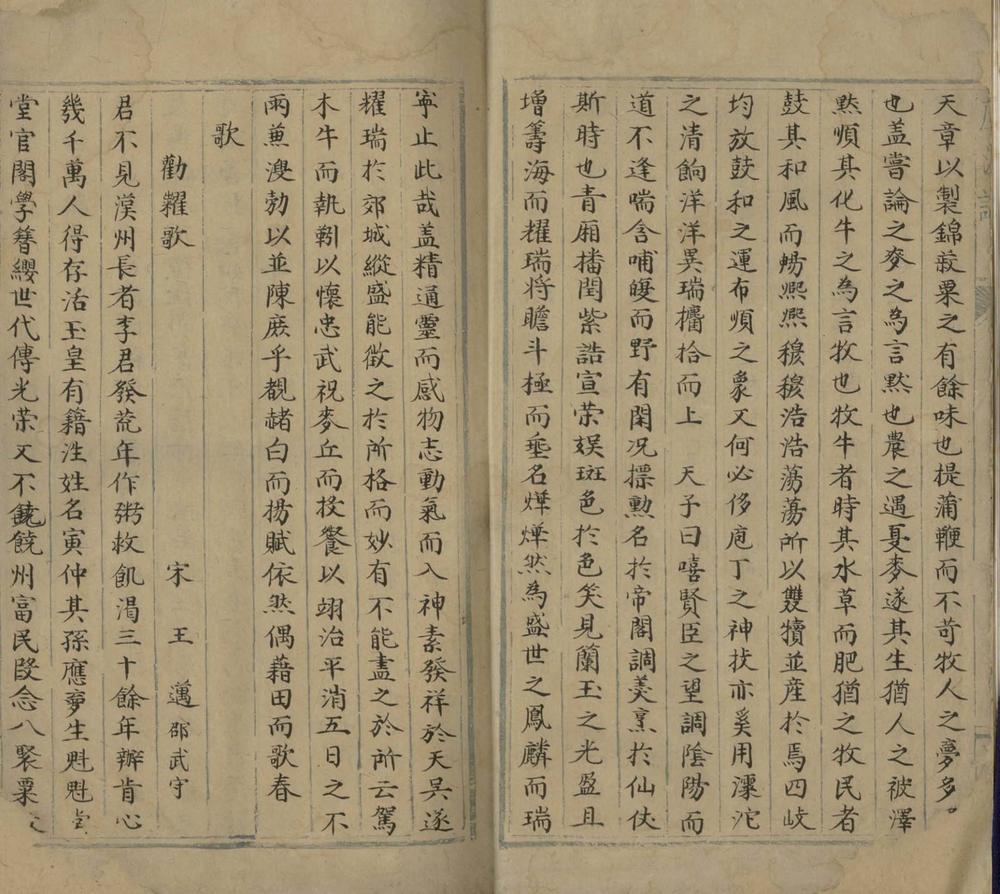 天章以製錦菽粟之有餘味也提蒲鞭而不苛牧人之夢多
也盖嘗論之麥之為言黙也農之遇憂麥遂其生猶人之被澤
黙順其化牛之為言牧也牧牛者時其水草而肥猶之牧民者
鼓其和風而暢熈熈穆穆浩浩蕩蕩所以雙犢並産於焉四歧
均放鼓和之運布順之象又何必侈庖丁之神技亦奚用滹沱
之清餉洋洋異瑞攟拾而上　天子曰嘻賢臣之望調陰陽而
道不逢喘含哺皥而野有閑况摽勲名於帝閣調羙烹於仙伕
斯時也青廂播閏紫誥宣荣娱斑色於色笑見蘭玉之光盈且
增籌海而耀瑞将瞻斗極而垂名燁燁然為盛世之鳳麟而瑞
寕止此哉盖精通靈而感物志動氣而入神素發祥於天昊遂
耀瑞於郊城縱盛能徴之於所格而妙有不能盡之於所云駕
木牛而執靷以懷忠武祝麥丘而投餐以翊治平消五日之不
雨蒽溲勃以並陳庶乎覩赭白而揚賦依然偶藉田而歌春
歌
勸糴歌　宋　王　邁 邵武守
君不見漠州長者李君發荒年作粥救飢渴三十餘年辦肯心
幾千萬人得存活玉皇有籍注姓名寅仲其孫應夢生魁魁堂
堂官閣學簪纓世代傳光荣又不饒饒州富民段念八聚粟